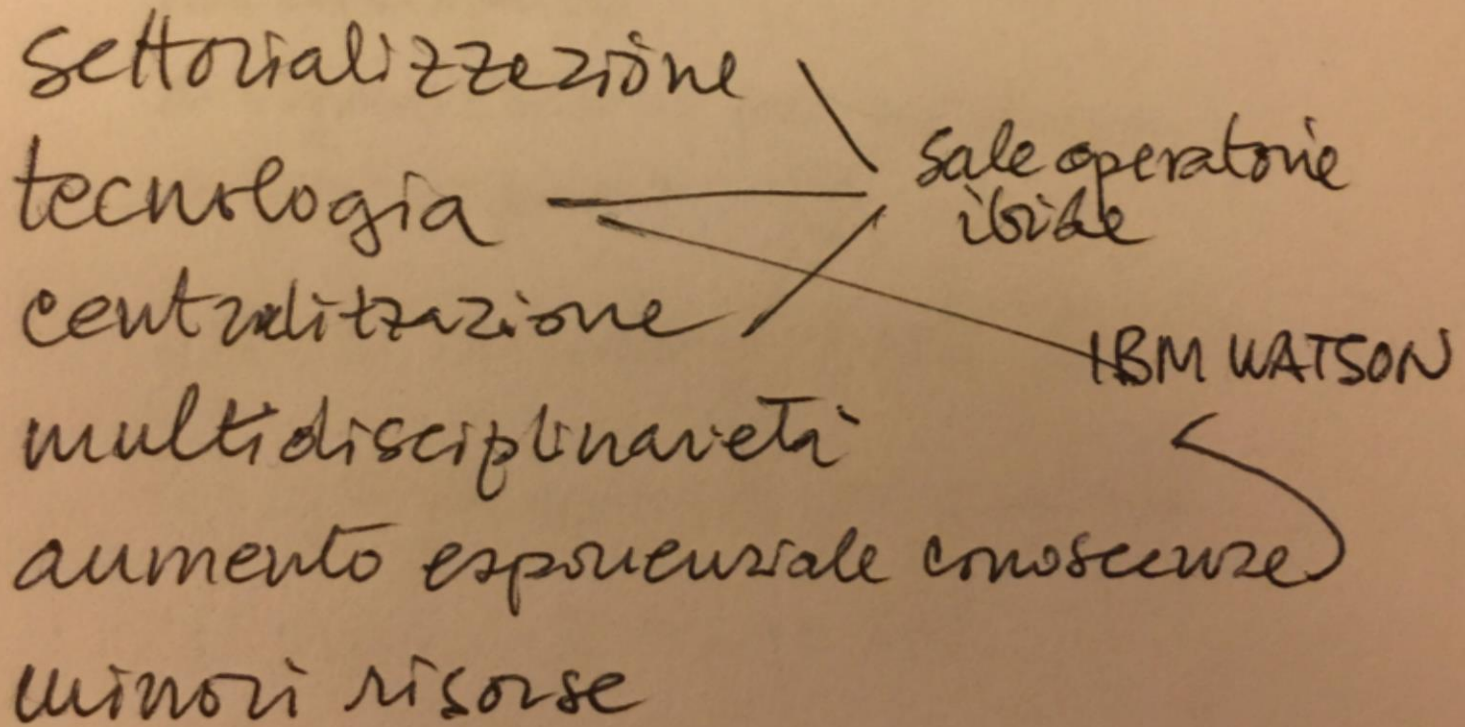 settorializzazione
tecnologia
centralizzazione
multidisciplinarietà
aumento esponenziale conoscenze
minori risorse
sale operatorie
ibride
IBM WATSON